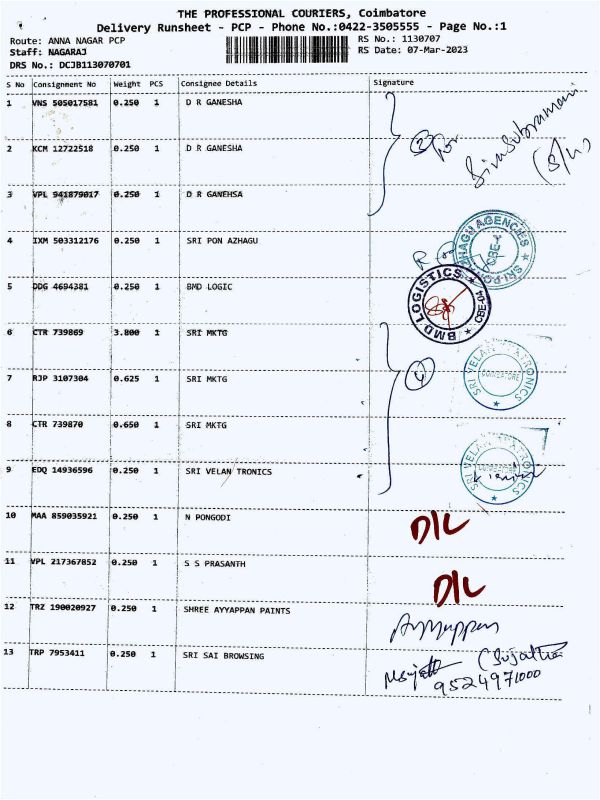 THE PROFESSIONAL COURIERS, Coimbatore
Delivery Runsheet - PCP - Phone No.:0422-3505555 - Page No.:1
Route: ANNA NAGAR PCP RS No.: 1130707
Staff: NAGARAJ RS Date: 07-Mar-2023
DRS No.: DCJB113070701
S No Consignment No Weight PCS Consignee Details Signature
1 VNS 505017581 0.250 1 D R GANESHA
Sivasubramani
2 KCM 12722518 0.250 1 D R GANESHA
3 VPL 941879017 0.250 1 D R GANEHSA
4 IXM 503312176 0.250 1 SRI PON AZHAGU
AGENCIES CBE-4
5 DDG 4694381 0.250 1 BMD LOGIC
BMD LOGISTICS CBE-04
6 CTR 739869 3.800 1 SRI MKTG
7 RJP 3107304 0.625 1 SRI MKTG 4
SRI VELAN TRONICS COIMBATORE
8 CTR 739870 0.650 1 SRI MKTG
9 EDQ 14936596 0.250 1 SRI VELAN TRONICS
SRI VELAN TRONICS
10 MAA 859035921 0.250 1 N PONGODI D/L
11 VPL 217367852 0.250 1 S S PRASANTH D/L
12 TRZ 190020927 0.250 1 SHREE AYYAPPAN PAINTS Ayyappan
13 TRP 7953411 0.250 1 SRI SAI BROWSING (Sujatha
9524971000